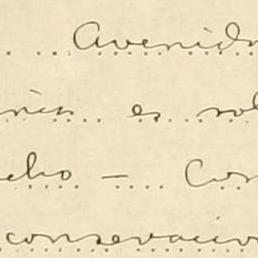 Avenid
es sol
cho - Con
conservació